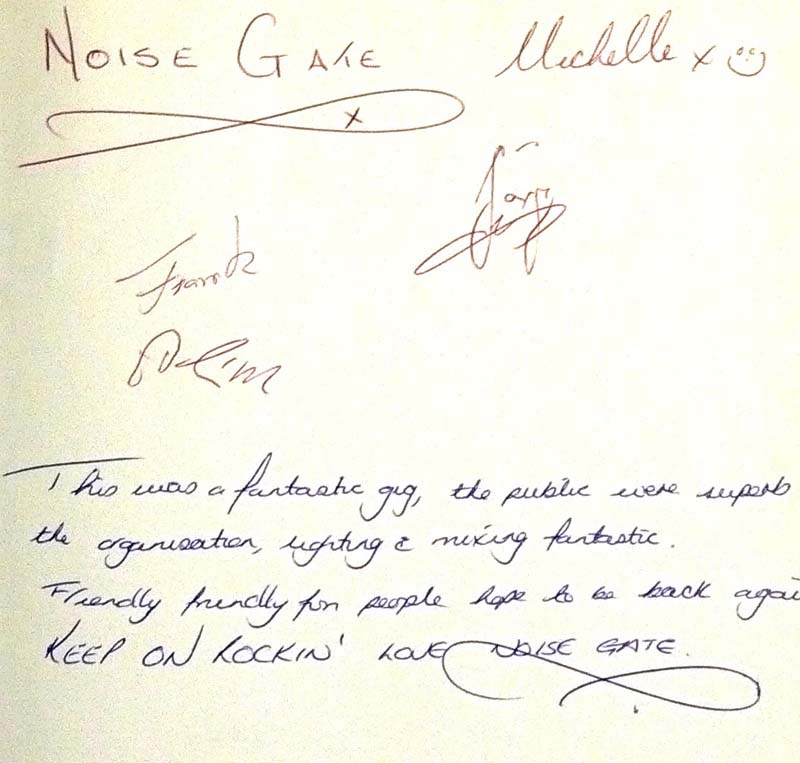 NOISE GATE
Michelle x
x
Frank
This was a fantastic gig, the public were superb
the organisation, lighting & mixing fantastic.
Friendly friendly fun people hope to be back agai
KEEP ON ROCKIN' LOVE NOISE GATE.